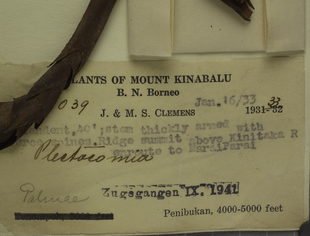 PLANTS OF MOUNT KINABALU
B. N. Borneo
039
Jan. 16/33
1931-32
33
J. & M. S. CLEMENS
40'; stem thickly armed with
Ridge summit above Kinitaka R
enroute to Marai Parai
Plectocomia
Palmae
Zugegangen IX. 1941
Penibukan, 4000-5000 feet